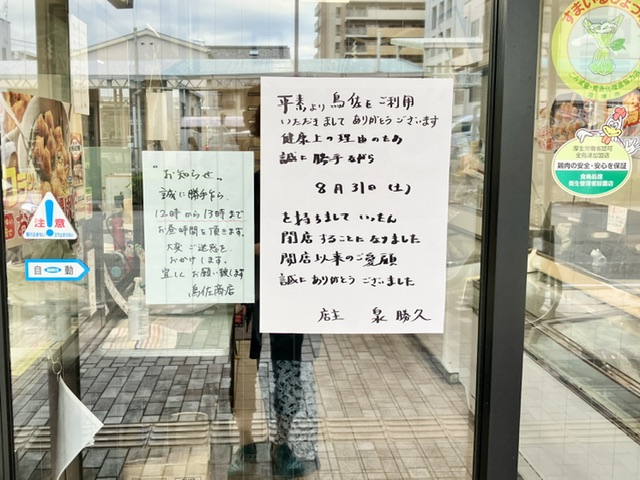 平素より鳥佐をご利用
いただきましてありがとうございます
健康上の理由のため
誠に勝手ながら
8月31日(土)
を持ちまして いったん
閉店することになりました
開店以来のご愛顧
誠にありがとうございました
店主 泉 勝久
"お知らせ"
誠に勝手乍ら、
12時から13時まで
お昼時間を頂きます。
大変ご迷惑を、
おかけします。
宜しくお願い致します
鳥佐商店
注意
自動
すまいるしょっ
厚生労働省認可
全鳥連加盟店
鶏肉の安全・安心を保証
食鳥処理
衛生管理者設置店